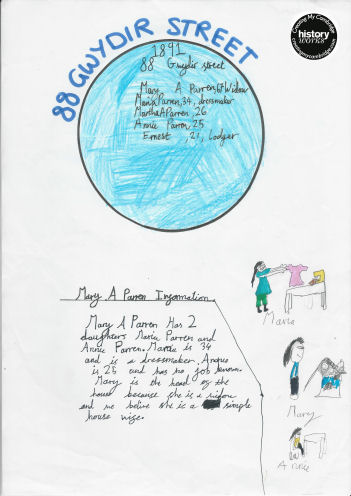 88 GWYDIR STREET
Creating My Cambridge
history
WORKS
creatingmycambridge.com
1891
88 Gwydir street
Mary A Parren, 67 Widow
Maria Parren, 34, dressmaker
Martha A Parren, 26
Annie Parren, 25
Ernest , 21, Lodger
Mary A Parren Information
Mary A Parren Has 2
daughters Maria Parren and
Annie Parren. Maria is 34
and is a dressmaker,
is 25 and has no job known.
Mary is the head of the
house because she is a widow
and we belive she is a simple
house wife.
Maria
Mary